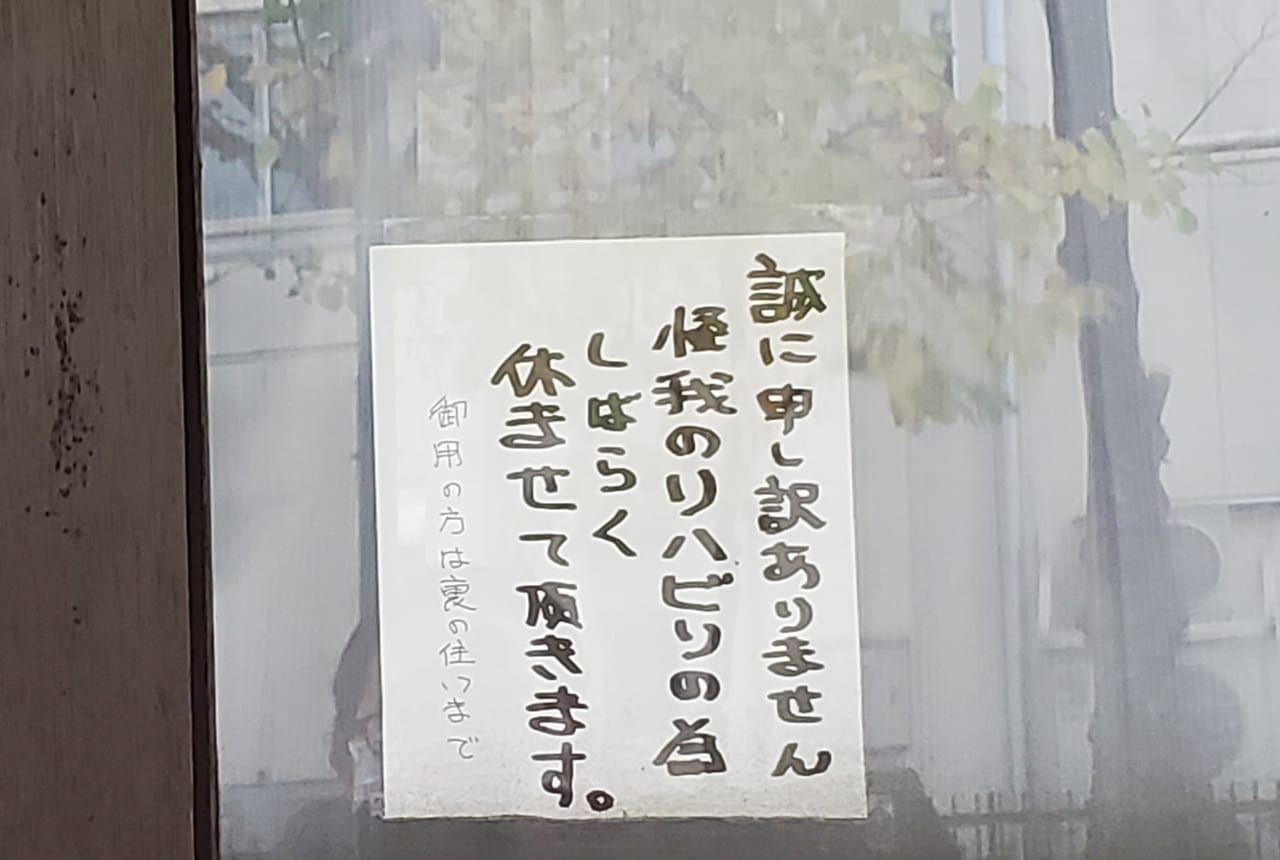 誠に申し訳ありません
怪我のリハビリの為
しばらく
休ませて頂きます。
御用の方は裏の住いまで